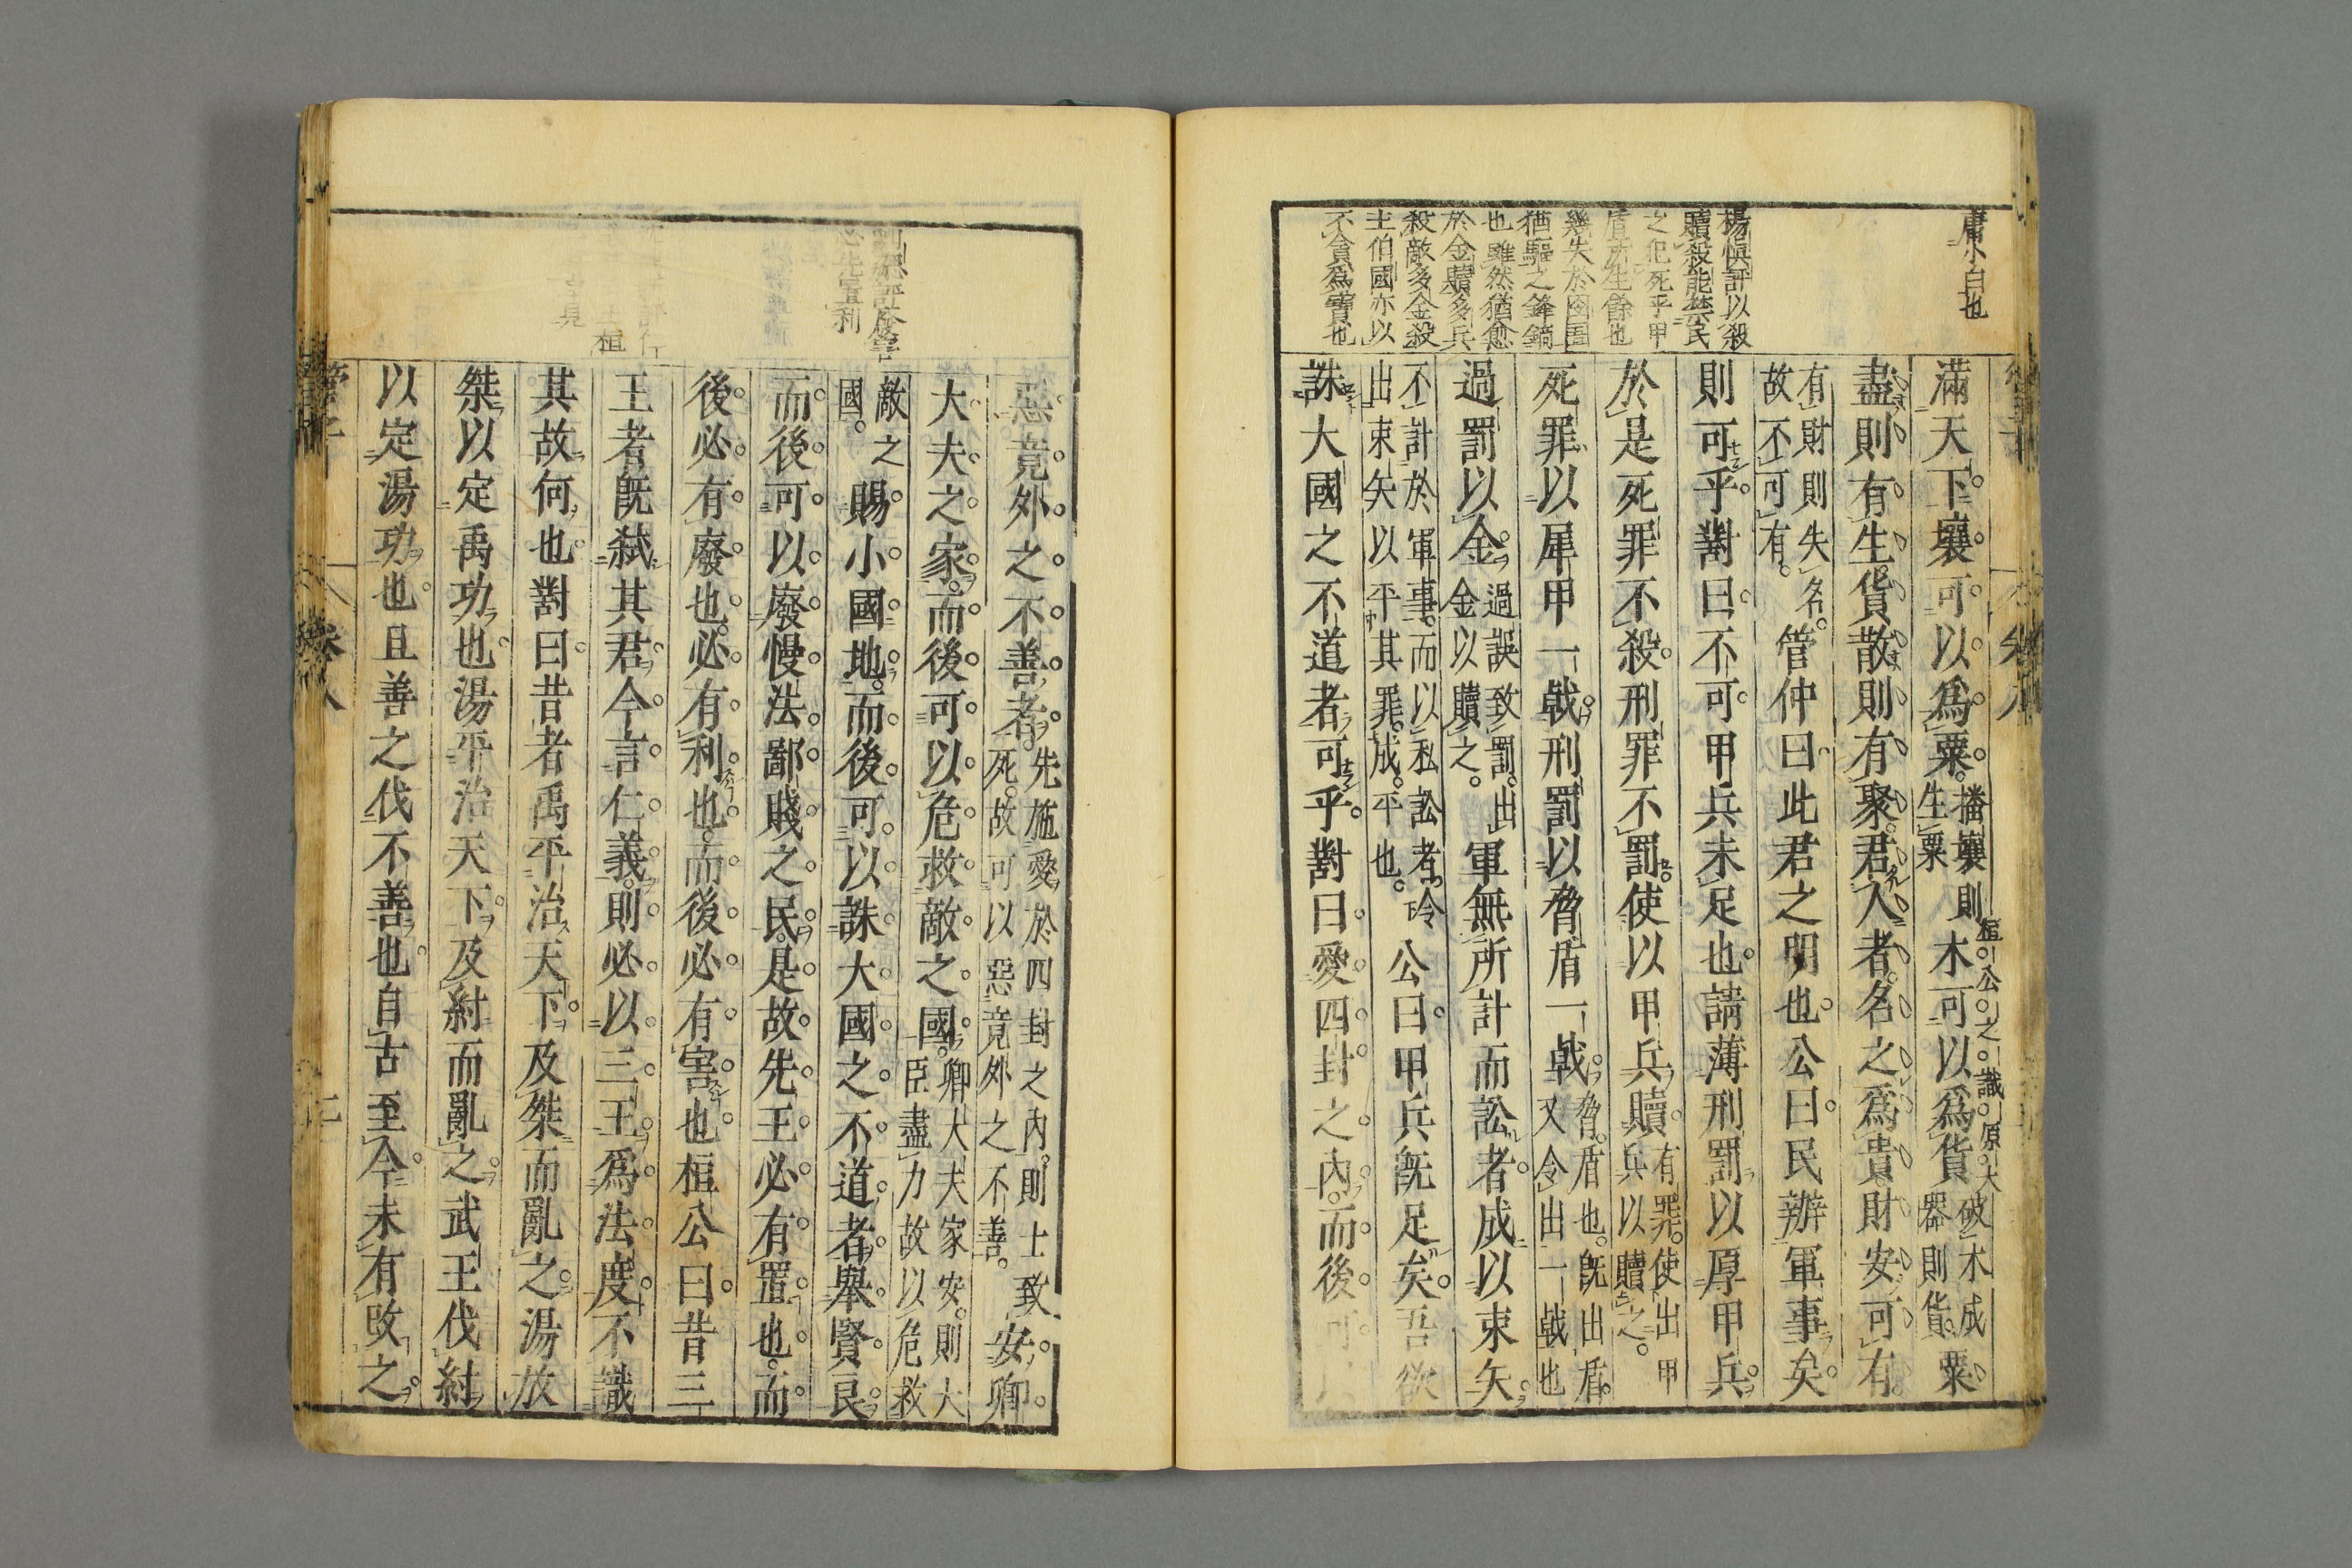 唐小白也
楊愼評以殺
贖殺能禁民
之犯死乎甲
盾所生餘也
幾失於囹圄
猶驅之鋒鏑
也雖然猶愈
於金贖多兵
殺敵多金殺
士伯國亦以
不貪爲寶也
滿天下壤可以爲粟播壤則生粟木可以爲貨破木成器則貨粟
桓公之識原大
盡則有生貨散則有聚君人者名之爲貴財安可有
有財則失名故不可有管仲曰此君之明也公曰民辦軍事矣
則可乎對曰不可甲兵未足也請薄刑罰以厚甲兵
於是死罪不殺刑罪不罰使以甲兵贖有罪使出甲兵以贖之
死罪以犀甲一戟刑罰以脅盾一戟脅盾也旣出盾又令出一戟也
過罰以金過誤致罰出金以贖之軍無所計而訟者成以束矢
不計於軍事而以私訟者令出束矢以平其罪成平也公曰甲兵旣足矣吾欲
誅大國之不道者可乎對曰愛四封之內而後可
管子
卷八
惡竟外之不善者先施愛於四封之內則士致死故可以惡竟外之不善安卿
大夫之家而後可以危救敵之國卿大夫家安則大臣盡力故以危救
敵之國賜小國地而後可以誅大國之不道者舉賢良
而後可以廢慢法鄙賤之民是故先王必有罝也而
後必有廢也必有利也而後必有害也桓公曰昔三
王者旣弑其君今言仁義則必以三王爲法度不識
其故何也對曰昔者禹平治天下及桀而亂之湯放
桀以定禹功也湯平治天下及紂而亂之武王伐紂
以定湯功也且善之伐不善也自古至今未有改之
管子
卷八